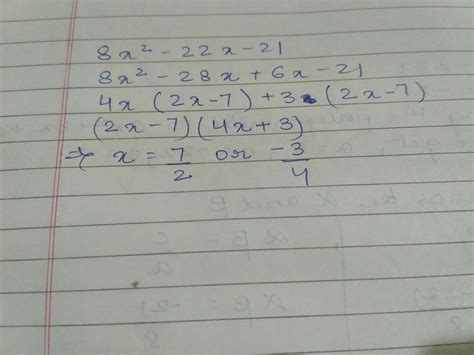 8x² - 22x - 21
8x² - 28x + 6x - 21
4x (2x-7) + 3 (2x-7)
(2x-7)(4x+3)
⇒ x = 7/2 or -3/4